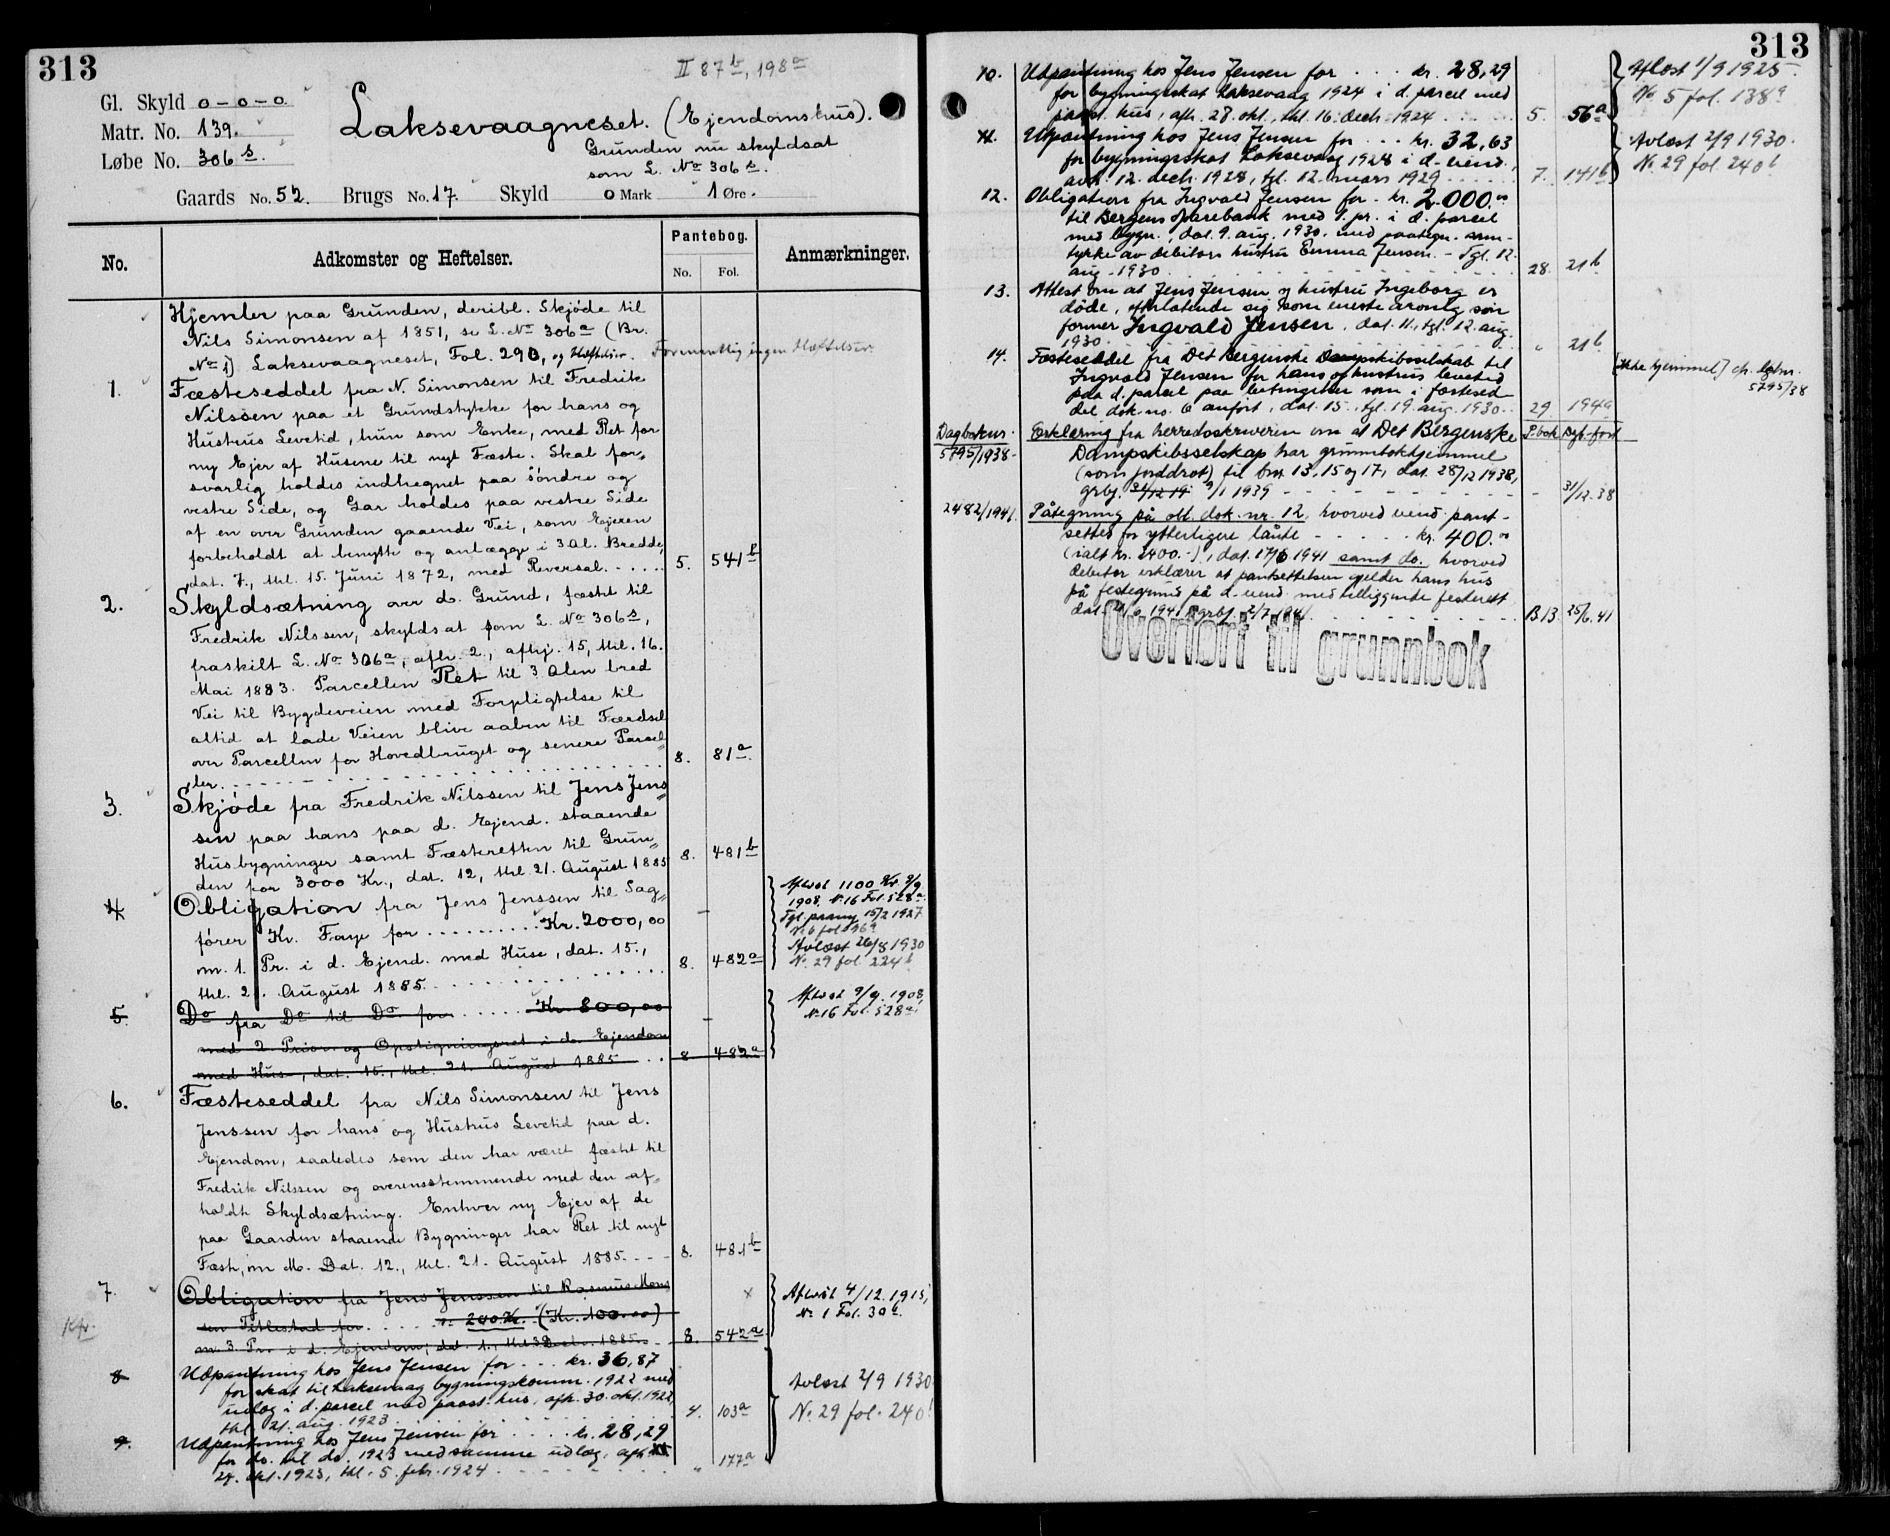 313
II 87b, 198a
Gl. Skyld 0-0-0
Matr. No. 139.
Løbe No. 306s.
Laksevaagneset. (Ejendomshus).
Grunden nu skyldsat
som L. No 306s.
Gaards No. 52. Brugs No. 17. Skyld 0 Mark 1 Øre.
No.
Adkomster og Heftelser.
Pantebog.
No. Fol.
Anmærkninger.
Hjemler paa Grunden, deribl. Skjøde til
Nils Simonsen af 1851, se L. No 306a (Br.
No 1) Laksevaagneset, Fol. 290, og Hæftelser. Formentlig ingen Hæftelser
1. Fæsteseddel fra N. Simonsen til Fredrik
Nilssen paa et Grundstykke for hans og
Hustrus Levetid, hun som Enke, med Ret for
ny Ejer af Husene til nyt Fæste. Skal for-
svarlig holdes indhegnet paa søndre og
vestre Side, og Gar holdes paa vestre Side
af en over Grunden gaaende Vei, som Ejeren
forbeholdt at benytte og anlægge i 3 Al. Bredde,
dat. 7., thl. 15. Juni 1872, med Reversal. 5. 541b
2. Skyldsætning over d. Grund, fæstet til
Fredrik Nilssen, skyldsat som L. No 306s,
fraskilt L. No 306a, afh. 2., afhj. 15, thl. 16.
Mai 1883. Parcellen Ret til 3 Alen bred
Vei til Bygdeveien med Forpligtelse til
altid at lade Veien blive aaben til Færdsel
over Parcellen for Hovedbruget og senere Parcel-
ler. 8. 81a
3. Skjøde fra Fredrik Nilssen til Jens Jens-
sen paa hans paa d. Ejend. staaende
Husbygninger samt Fæsteretten til Grun-
den for 3000 Kr., dat. 12, thl. 21. August 1885 8. 481b
4. Obligation fra Jens Jenssen til Sag-
fører Kr. Faye for Kr. 2000,00
m. 1. Pr. i d. Ejend. med Huse, dat. 15.,
thl. 21. August 1885. 8. 482a
Afløst 1100 Kr. 9/9
1908, No 16 Fol. 528a.
Avlæst 26/8 1930
No. 29 fol. 224b
5. Do fra Do til Do for Kr. 800,00
med 2 Prior. og Opstigningsret i d. Ejendom
med Huse, dat. 15., thl. 21. August 1885 8 482a
Afløst 9/9 1908,
No 16 Fol. 528a.
6. Fæsteseddel fra Nils Simonsen til Jens
Jenssen for hans og Hustrus Levetid paa d.
Ejendom, saaledes som den har været fæstet til
Fredrik Nilssen og overensstemmende med den af-
holdte Skyldsætning. Enhver ny Ejer af de
paa Gaarden staaende Bygninger har Ret til nyt
Fæste, m. M. Dat. 12., thl. 21. August 1885. 8. 481b
7. Obligation fra Jens Jenssen til Rasmus Mons
sen Titlestad for 240 Kr. (Kr. 100.00)
m. 3. Pr. i d. Ejendom, dat. 1., 1885. 8. 542a
Afløst 4/12. 1915,
No 1 Fol. 30b.
8 Udpantning hos Jens Jensen for kr. 36,87
for skat til Laksevaag bygningskomm. 1922 med
udlæg i d. parcel med paast. hus, afh. 30. okt. 1922,
thl. 21. aug. 1923. 4. 103a
Avlæst 2/9 1930
No. 29 fol. 240b
9. Udpantning hos Jens Jensen for kr. 28,29
for do. til do. 1923 med samme udlæg, afh.
24. okt. 1923, thl. 5. febr. 1924. " 177a
313
10. Udpantning hos Jens Jensen for kr. 28,29
for bygningsskat Laksevaag 1924 i d. parcel med
paast. hus, afh. 28. okt., thl. 16. dech. 1924. 5. 56a
Afløst 1/9 1925.
No 5 fol. 138a
11. Utpantning hos Jens Jensen for kr. 32,63
for bygningsskat Laksevaag 1928 i d. eiend.,
avh. 12. dech. 1928, tgl. 12. mars 1929 7. 141b
Avlæst 2/9 1930.
No. 29 fol. 240b
12. Obligation fra Ingvald Jensen for kr. 2.000.00
til Bergens Sparebank med 1. pr. i d. parcel
med bygn., dat. 9. aug. 1930, med paategn. sam-
tykke av debitors hustru Emma Jensen. - Tgl. 12.
aug. 1930 28. 21b
13. Attest om at Jens Jensen og hustru Ingeborg er
døde, efterlatende sig som eneste arving søn
formen Ingvald Jensen, dat. 11., tgl. 12. aug.
1930. " 21b
14. Fæsteseddel fra Det Bergenske Dampskibsselskab til
Ingvald Jensen for hans og hustrus levetid
paa d. parcel paa betingelser som i fæstesed-
del dok. no. 6 anført, dat. 15., tgl. 19. aug. 1930. 29 194a
[Ikke hjemmel] cfr. dgbnr.
5795/38
Dagboknr. Erklæring fra herredsskriveren om at Det Bergenske P.bok Dgb.ført
5795/1938 Dampskibsselskap har grunnbokhjemmel
(som jorddrot) til bnr. 13, 15 og 17, dat. 28/12 1938,
grbj. 31/12 19 9/1 1939 - 31/12.38
2482/1941. Påtegning på obl. dok. nr. 12, hvorved eiend. pant-
settes for ytterligere lånte kr. 400.00
(ialt kr. 2400.-), dat. 17/6 1941 samt do. hvorved
debitor erklærer at pantsettelsen gjelder hans hus
på festegrund på d. eiend. med tilliggende festerett
dat. 1941. grbf. 2/7 1941. B.13 25/6.41
Overført til grunnbok